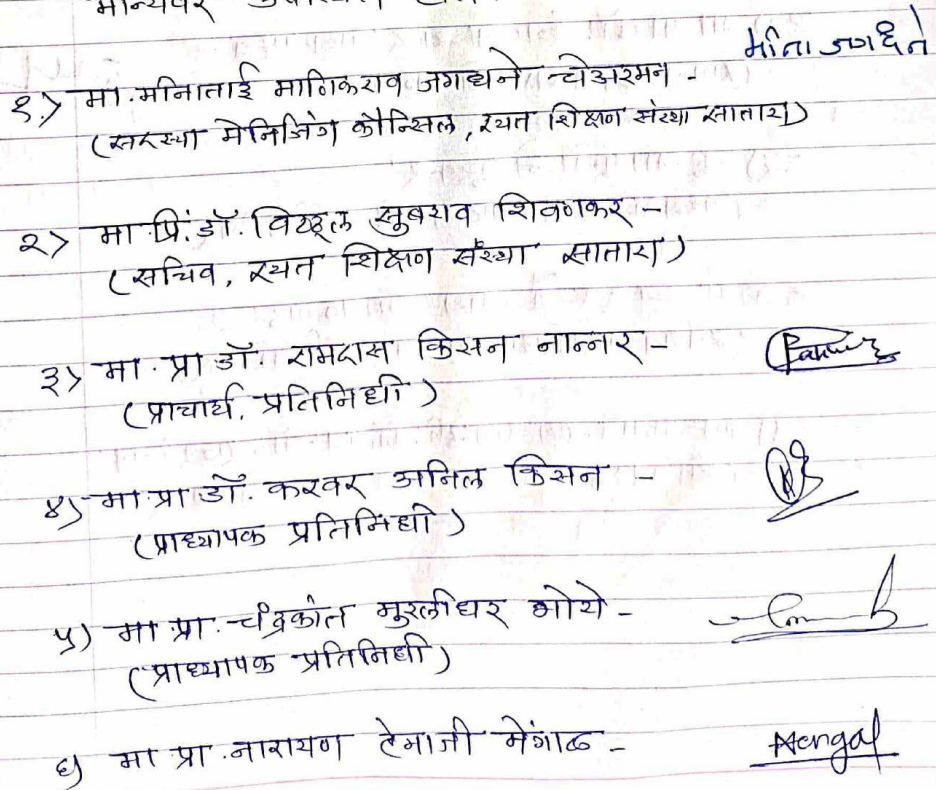 मान्यवर
मीना जगधने
१.> मा. मीनाताई माणिकराव जगधने चेअरमन -
(सदस्या मेनिजिंग कौन्सिल, रयत शिक्षण संस्था सातारा)
२> मा. प्रिं. डॉ. विठ्ठल सुबराव शिवणकर -
(सचिव, रयत शिक्षण संस्था सातारा)
३> मा. प्रा डॉ. रामदास किसन नान्नर -
(प्राचार्य, प्रतिनिधी)
४) मा. प्रा. डॉ. करवर अनिल किसन -
(प्राध्यापक प्रतिनिधी)
५) मा. प्रा. चंद्रकांत मुरलीधर भोये -
(प्राध्यापक प्रतिनिधी)
६) मा प्रा. नारायण हेमाजी मेंगाळ - Mengal